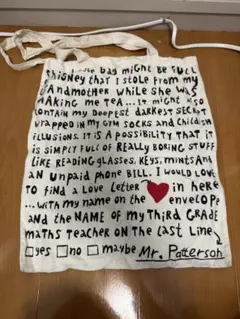 bag might be full
money that I stole from my
grandmother while she was
making me tea... It might also
contain my deepest darkest secret
wrapped in my gym socks and childish
illusions. It is a possibility that it
is simply full of really boring stuff
like reading glasses, keys, mints and
an unpaid phone bill. I would love
to find a love letter in here
...with my name on the envelope
and the name of my third grade
maths teacher on the last line
yes no maybe Mr. Patterson